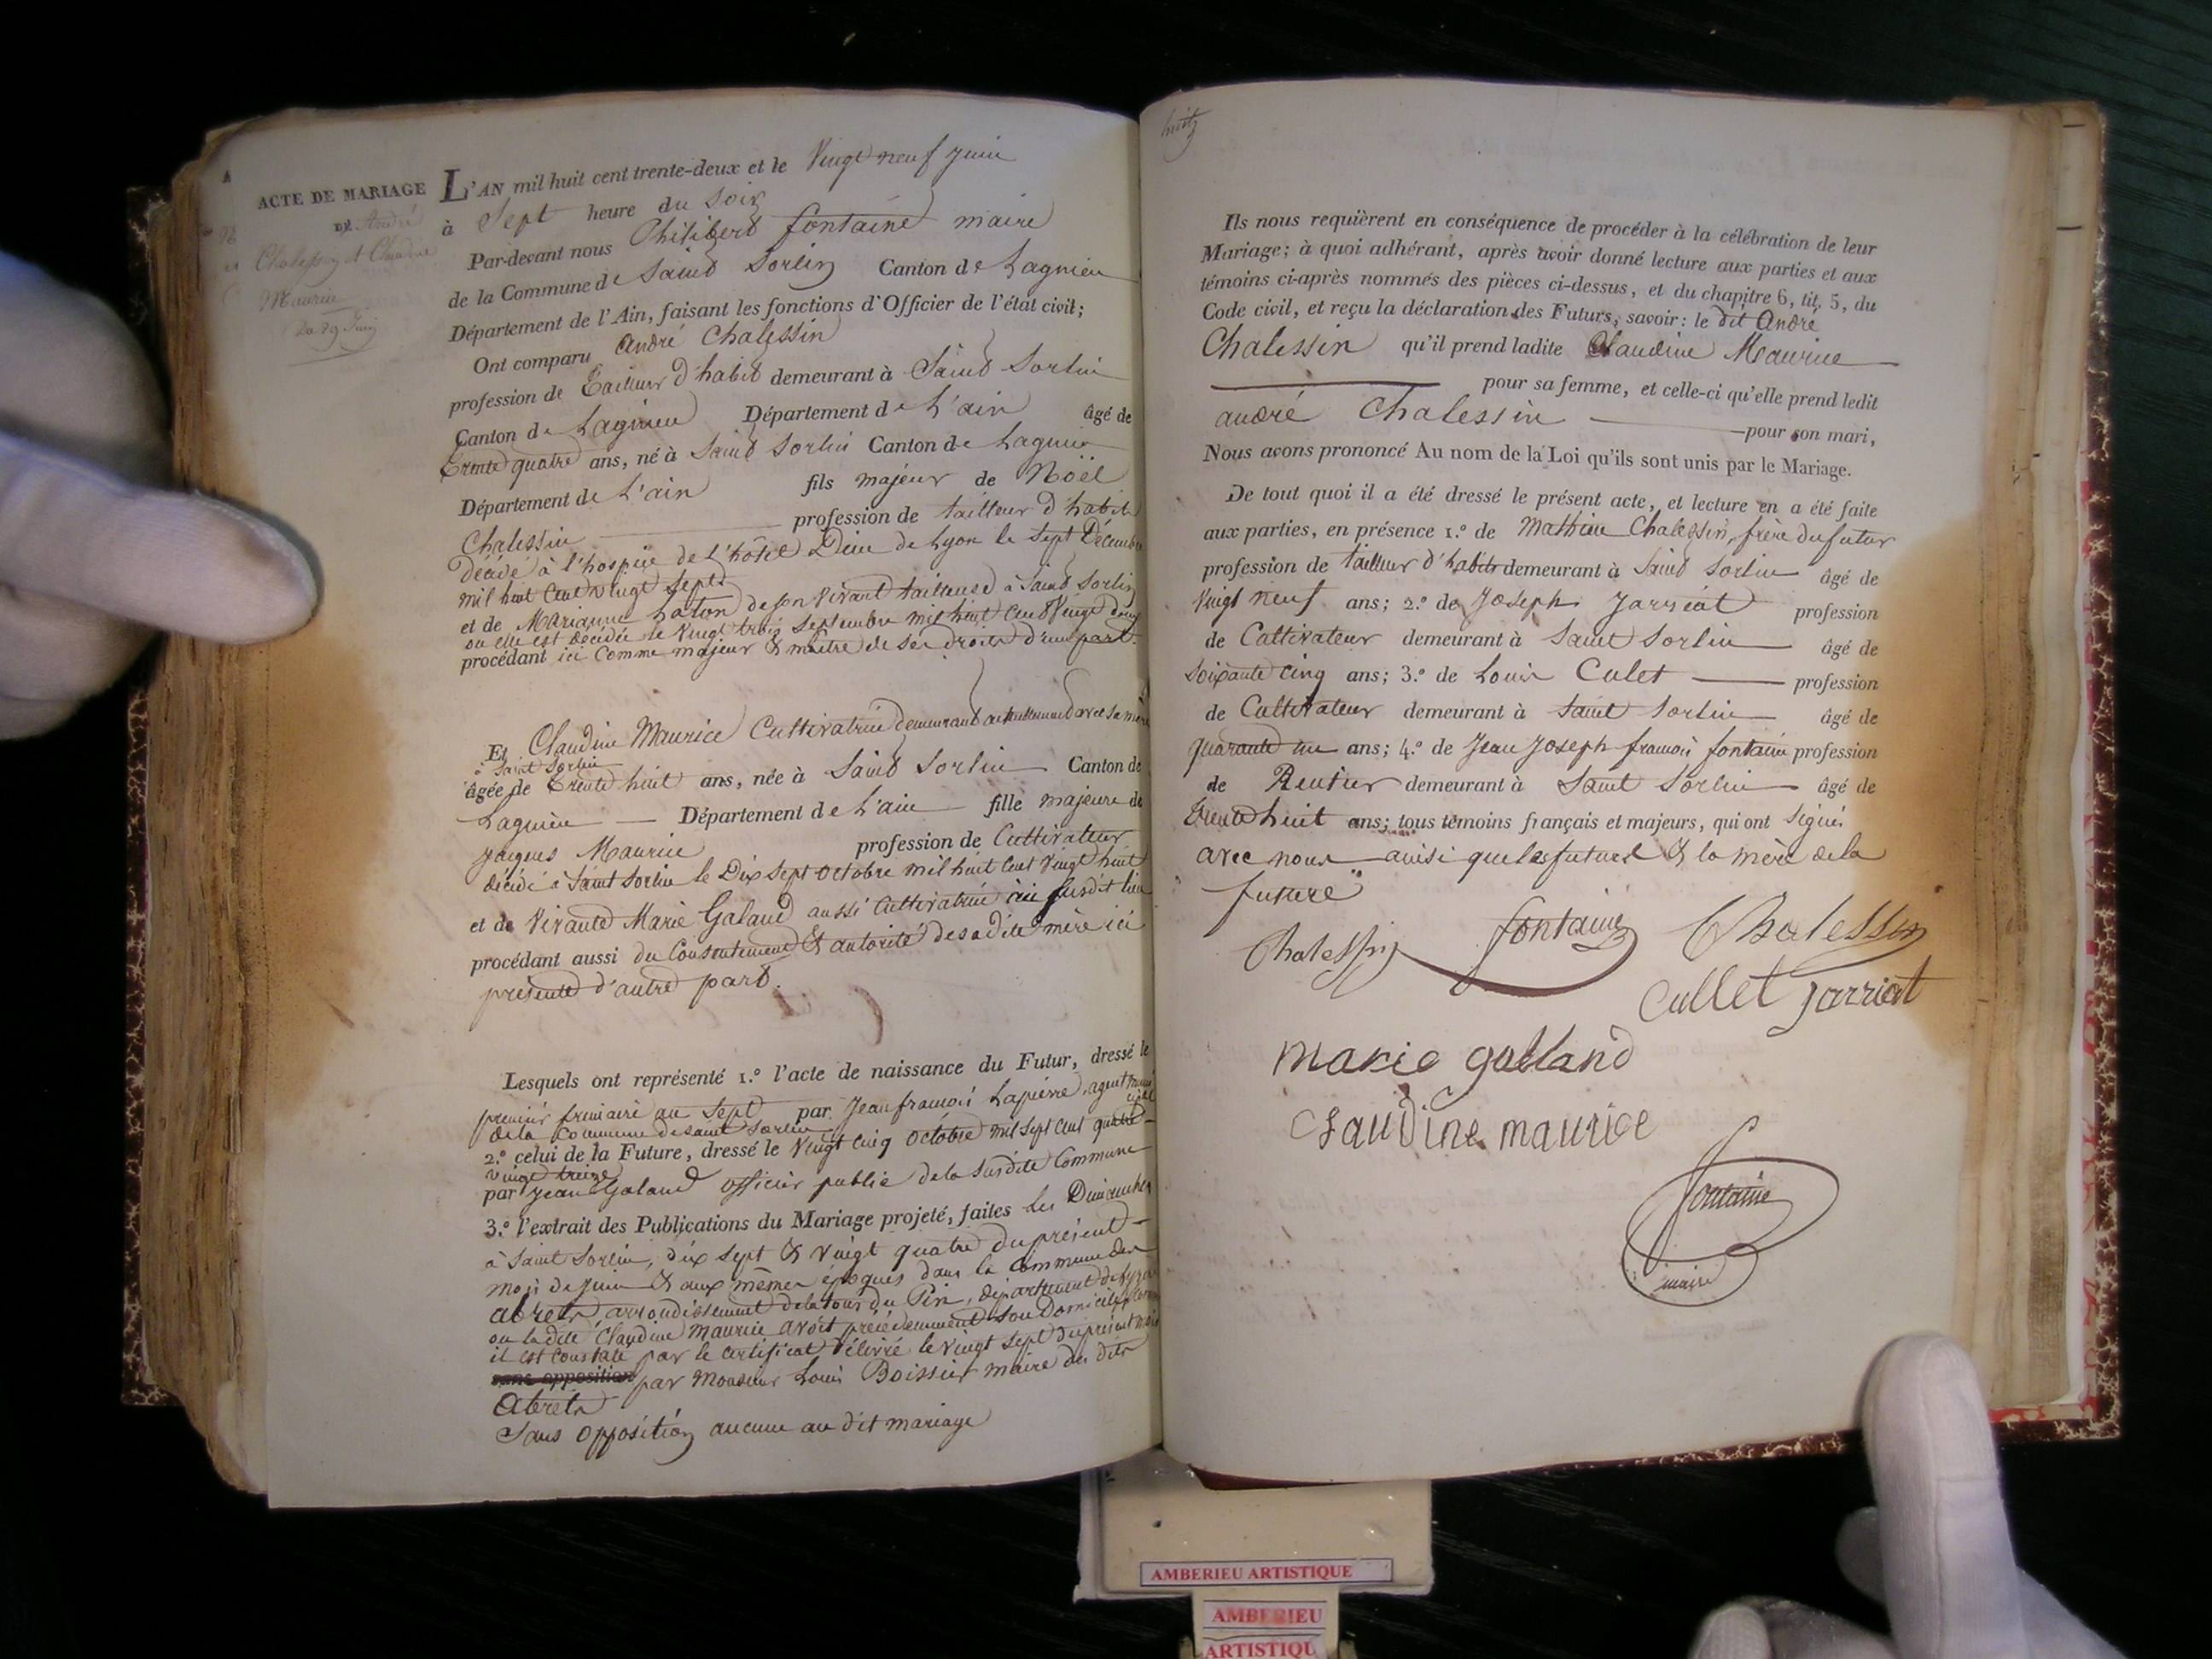 ACTE DE MARIAGE
DE André
Chalessin et Claudine
Maurice
Du 29 Juin
L'AN mil huit cent trente-deux et le Vingt neuf juin
à Sept heure du Soir
Par-devant nous Philibert fontaine maire
de la Commune de Saint Sorlin Canton de Lagnieu
Département de l'Ain, faisant les fonctions d'Officier de l'état civil;
Ont comparu André Chalessin
profession de Tailleur d'habit demeurant à Saint Sorlin
Canton de Lagnieu Département de L'ain âgé de
Trente quatre ans, né à Saint Sorlin Canton de Lagnieu
Département de L'ain fils majeur de Noël
Chalessin profession de tailleur d'habit
décédé à l'hospice de L'hôtel Dieu de Lyon le sept Décembre
mil huit Cent vingt sept
et de Marianne Laton de son vivant tailleuse à Saint Sorlin
ou elle est décédée le vingt trois septembre mil huit Cent Vingt deux
procédant ici Comme majeur & maitre de ses droits d'une part.
Et Claudine Maurice Cultivatrice demeurant actuellement avec sa mère
à Saint Sorlin
âgée de Trente huit ans, née à Saint Sorlin Canton de
Lagnieu Département de L'ain fille majeure de
Jacques Maurice profession de Cultivateur
décédé à Saint Sorlin le Dix sept octobre mil huit Cent vingt huit
et de Vivante Marie Galand aussi Cultivatrice au susdit lieu
procédant aussi du Consentement & autorité de sa dite mère ici
présente d'autre part.
Lesquels ont représenté 1.º l'acte de naissance du Futur, dressé le
premier frimaire an Sept par Jean françois Lapierre, agent municipal
de la Commune de saint Sorlin
2.º celui de la Future, dressé le Vingt cinq Octobre mil sept Cent quatre
vingt treize
par Jean Galand officier public de la susdite Commune
3.º l'extrait des Publications du Mariage projeté, faites les Dimanches
à Saint Sorlin, dix sept & vingt quatre du présent
mois de Juin & aux mêmes époques dans la Commune des
abrets, arrondissement de la tour du Pin, département de
ou la dite Claudine Maurice avoit précédemment son Domicile,
il est constaté par le certificat délivré le vingt sept du présent mois
sans opposition par Monsieur Louis Boissier maire des dits
Abrets
Sans opposition aucune au dit mariage
huit
Ils nous requièrent en conséquence de procéder à la célébration de leur
Mariage; à quoi adhérant, après avoir donné lecture aux parties et aux
témoins ci-après nommés des pièces ci-dessus, et du chapitre 6, tit. 5, du
Code civil, et reçu la déclaration des Futurs, savoir: le dit André
Chalessin qu'il prend ladite Claudine Maurice
pour sa femme, et celle-ci qu'elle prend ledit
andré Chalessin
pour son mari,
Nous avons prononcé Au nom de la Loi qu'ils sont unis par le Mariage.
De tout quoi il a été dressé le présent acte, et lecture en a été faite
aux parties, en présence 1.º de Mathieu Chalessin, frère du futur
profession de tailleur d'habits demeurant à Saint Sorlin âgé de
Vingt neuf ans; 2.º de Joseph Jarriat profession
de Cultivateur demeurant à Saint Sorlin âgé de
soixante cinq ans; 3.º de Louis Culet profession
de Cultivateur demeurant à Saint Sorlin âgé de
quarante un ans; 4.º de Jean Joseph françois fontaine profession
de Rentier demeurant à Saint Sorlin âgé de
trente huit ans; tous témoins français et majeurs, qui ont signé
avec nous ainsi que les futurs & la mère de la
future
Chalessin fontaine Chalessin
Cullet Jarriat
marie galland
claudine maurice
fontaine
maire
AMBERIEU ARTISTIQUE
AMBERIEU
ARTISTIQU